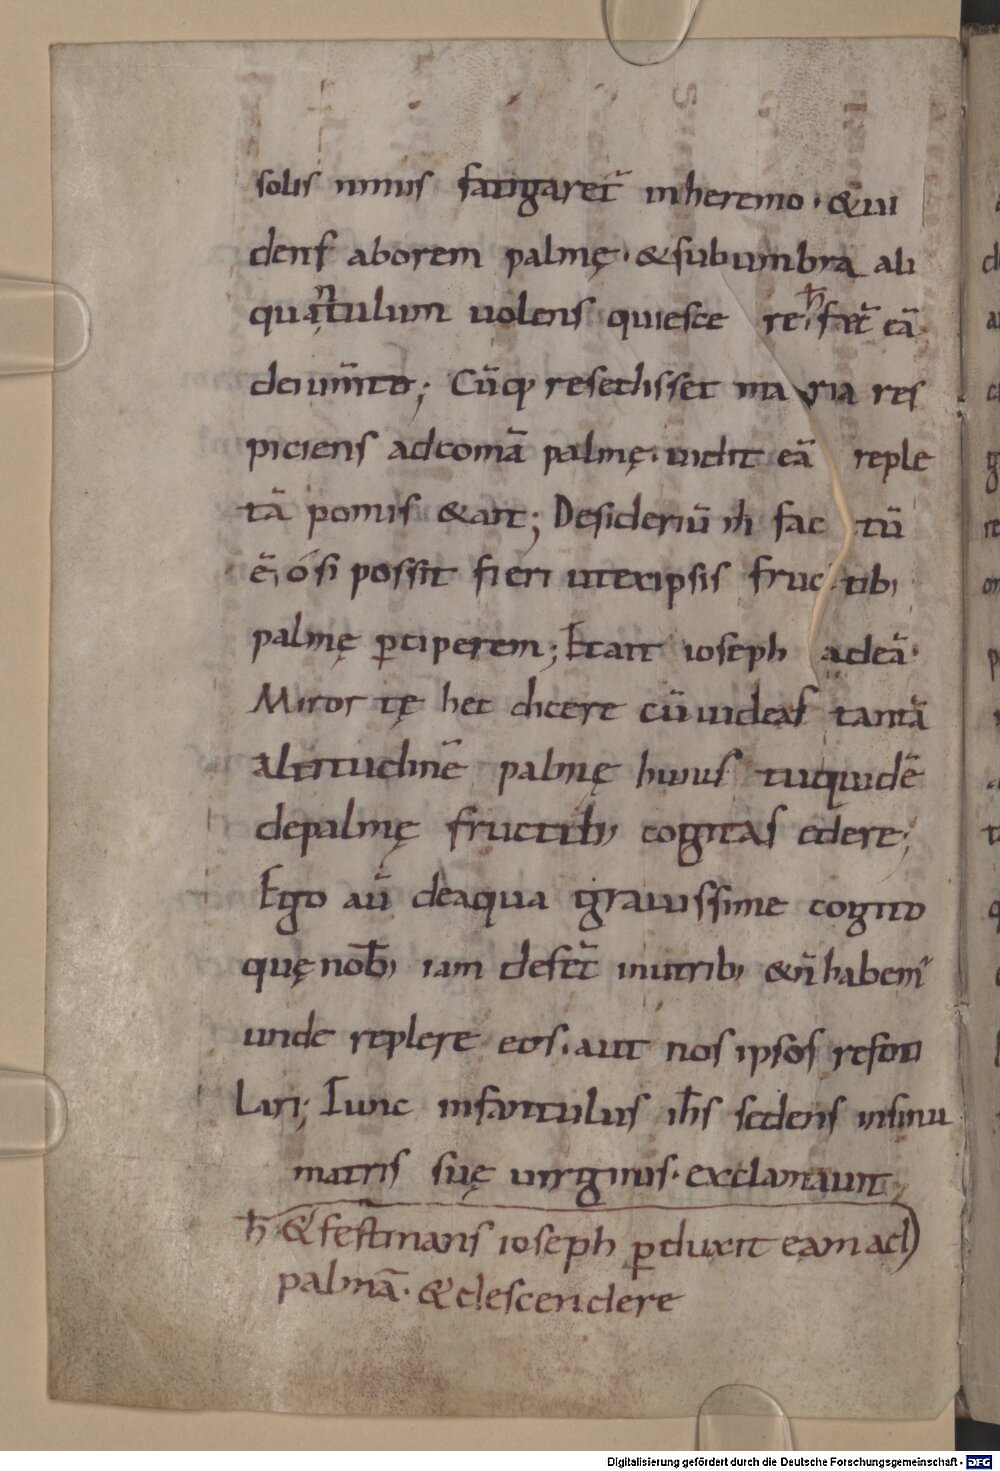 solis nimis fatigaret᷑ inheremo · &ui
dens aborem palmę · &subumbra ali
quantulum uolens quiesce re; fæt᷑ eā
deium̄to; Cūq; resedisset ma ria res
piciens adcomā palmę · uidit eā reple
tā pomis &ait; Desideriū m̄ fac tū
ē, ó si possit fieri utexipsis fruc tib;
palmę ꝑciperem; Etait ioseph adeā·
Miror tę hec dicere cū uideas tantā
altitudinē palmę huius tuquidē
depalmę fructib; cogitas edere;
Ego aū deaqua grauissime cogito
quę nob̄; iam defec̄ inutrib; &n̄ habem᷒
unde replere eos · aut nos ipsos refoci
lari; Tunc infantulus ih̄s sedens insinu
matris suę uirginis · exclamauit
ħ &festinans ioseph ꝑduxit eam ad
palmā · &descendere
Digitalisierung gefördert durch die Deutsche Forschungsgemeinschaft - DFG